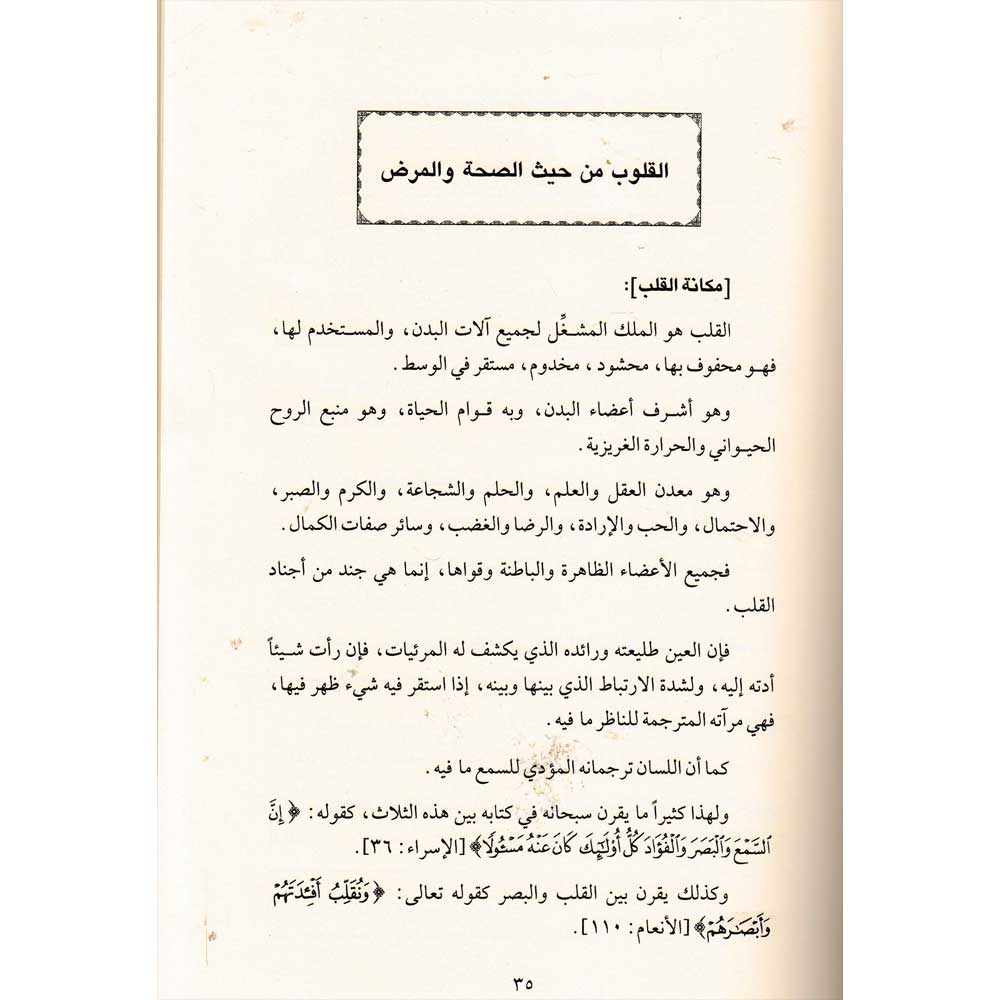 القلوب من حيث الصحة والمرض
[مكانة القلب]:
القلب هو الملك المشغِّل لجميع آلات البدن، والمستخدم لها،
فهو محفوف بها، محشود، مخدوم، مستقر في الوسط.
وهو أشرف أعضاء البدن، وبه قوام الحياة، وهو منبع الروح
الحيواني والحرارة الغريزية.
وهو معدن العقل والعلم، والحلم والشجاعة، والكرم والصبر،
والاحتمال، والحب والإرادة، والرضا والغضب، وسائر صفات الكمال.
فجميع الأعضاء الظاهرة والباطنة وقواها، إنما هي جند من أجناد
القلب.
فإن العين طليعته ورائده الذي يكشف له المرئيات، فإن رأت شيئاً
أدته إليه، ولشدة الارتباط الذي بينها وبينه، إذا استقر فيه شيء ظهر فيها،
فهي مرآته المترجمة للناظر ما فيه.
كما أن اللسان ترجمانه المؤدي للسمع ما فيه.
ولهذا كثيراً ما يقرن سبحانه في كتابه بين هذه الثلاث، كقوله: ﴿إِنَّ
ٱلسَّمْعَ وَٱلْبَصَرَ وَٱلْفُؤَادَ كُلُّ أُوْلَٰٓئِكَ كَانَ عَنْهُ مَسْـُٔولًا﴾ [الإسراء: ٣٦].
وكذلك يقرن بين القلب والبصر كقوله تعالى: ﴿وَنُقَلِّبُ أَفْـِٔدَتَهُمْ
وَأَبْصَٰرَهُمْ﴾ [الأنعام: ١١٠].
٣٥